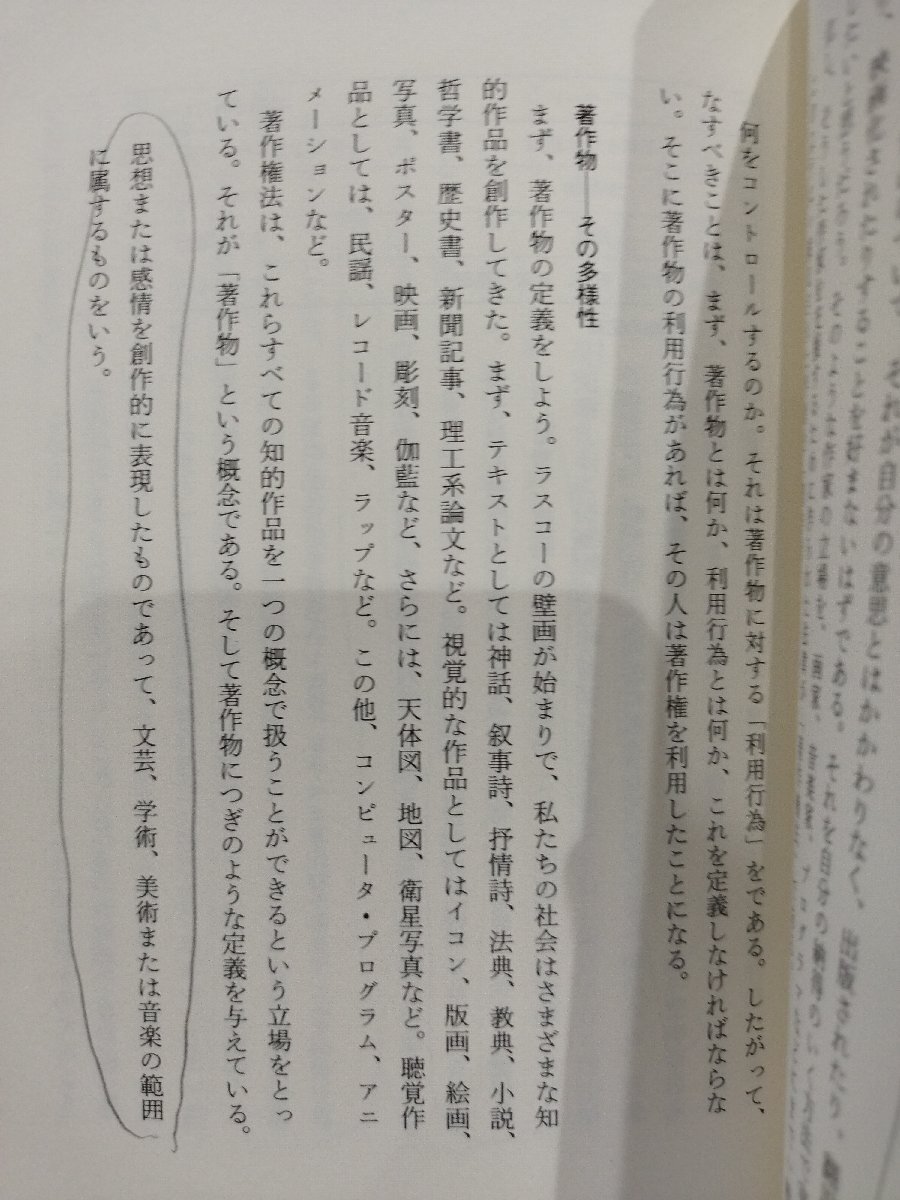 何をコントロールするのか。それは著作物に対する「利用行為」をである。したがって、
なすべきことは、まず、著作物とは何か、利用行為とは何か、これを定義しなければならな
い。そこに著作物の利用行為があれば、その人は著作権を利用したことになる。
著作物——その多様性
まず、著作物の定義をしよう。ラスコーの壁画が始まりで、私たちの社会はさまざまな知
的作品を創作してきた。まず、テキストとしては神話、叙事詩、抒情詩、法典、教典、小説、
哲学書、歴史書、新聞記事、理工系論文など。視覚的な作品としてはイコン、版画、絵画、
写真、ポスター、映画、彫刻、伽藍など、さらには、天体図、地図、衛星写真など。聴覚作
品としては、民謡、レコード音楽、ラップなど。この他、コンピュータ・プログラム、アニ
メーションなど。
著作権法は、これらすべての知的作品を一つの概念で扱うことができるという立場をとっ
ている。それが「著作物」という概念である。そして著作物につぎのような定義を与えている。
思想または感情を創作的に表現したものであって、文芸、学術、美術または音楽の範囲
に属するものをいう。